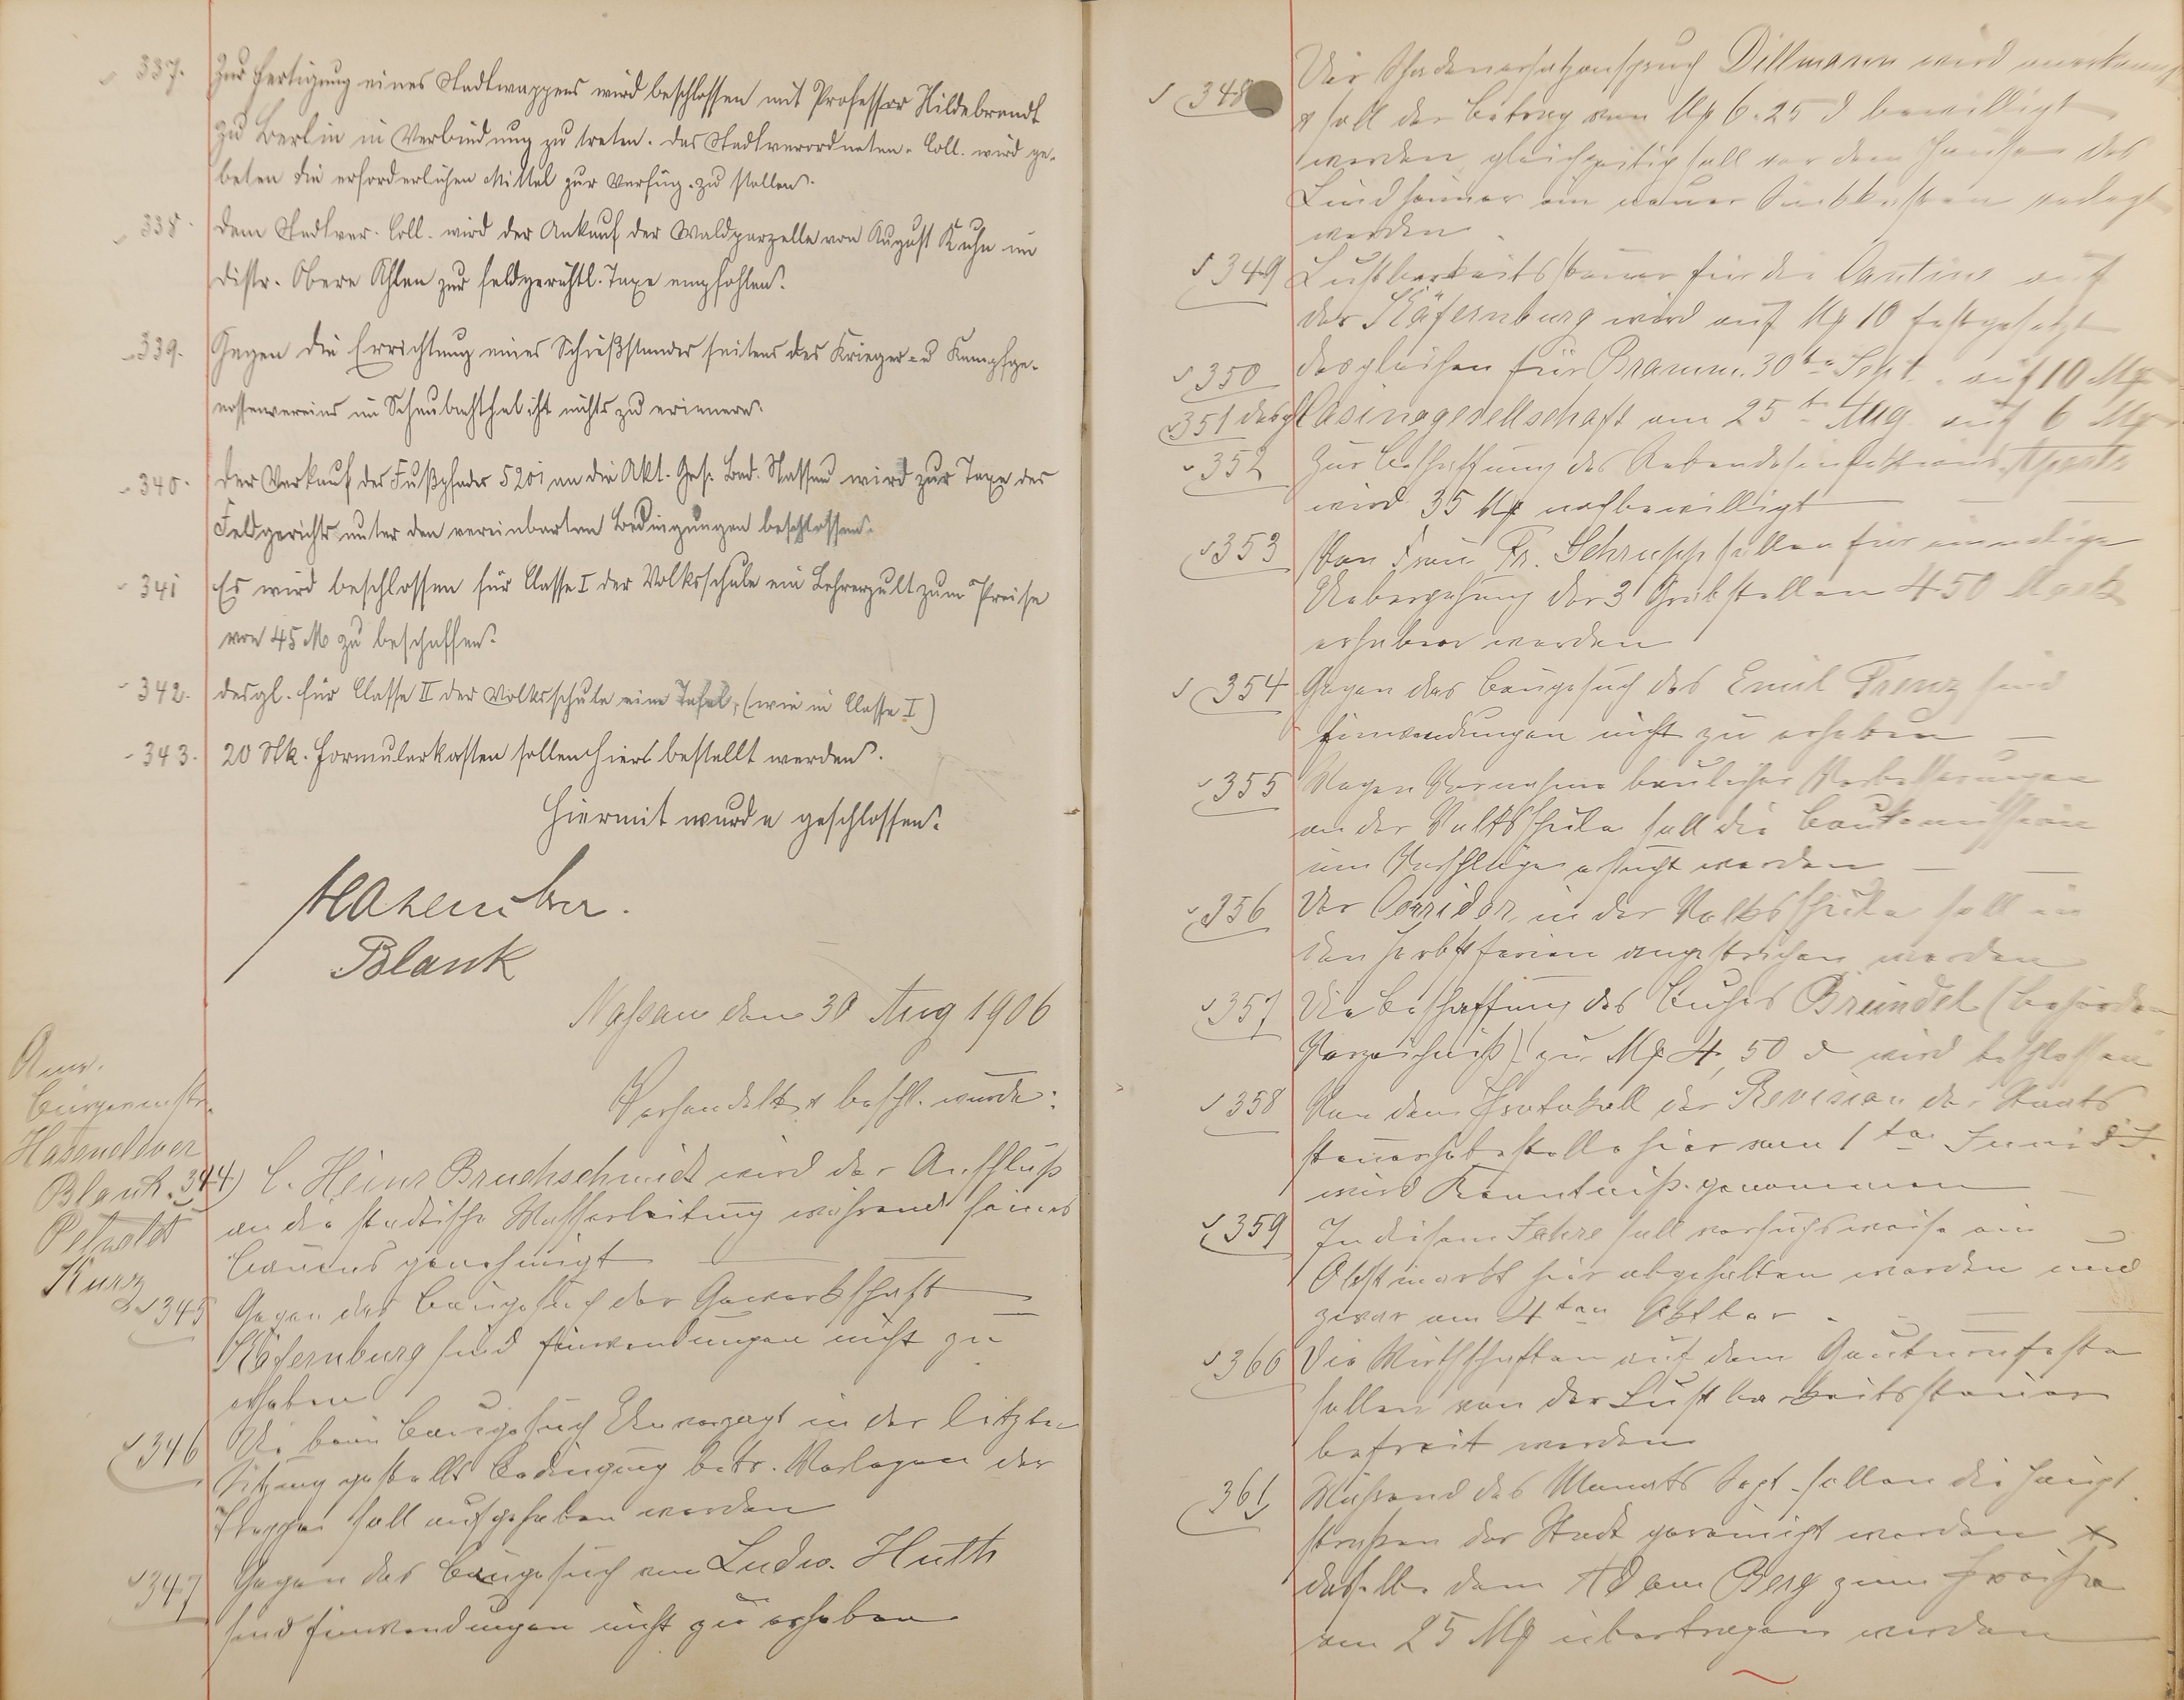 337. Zur Fertigung eines Stadtwappens wird beschlossen mit Professor Hildebrandt
zu Berlin in Verbindung zu treten. Das Stadtverordneten-Coll. wird ge-
beten die erforderlichen Mittel zur Verfüg. zu stellen.
338. Dem Stadtver. Coll. wird der Ankauf der Waldparzelle von August Kuhn im
Distr. Obere Ahlen zur feldgerichtl. Taxe empfohlen.
339. Gegen die Errichtung eines Schießstandes seitens des Krieger- u Kampfge-
nossenvereins im Scheubachthal ist nichts zu erinnern.
340. Der Verkauf des Fußpfades 5201 an die Akt. Ges. Bad. Nassau wird zur Taxe des
Feldgerichts unter den vereinbarten Bedingungen beschlossen.
341 Es wird beschlossen für Classe I der Volksschule ein Lehrerpult zum Preise
von 45 M zu beschaffen.
342. desgl. für Classe II der Volksschule eine Tafel, (wie in Classe I)
343. 20 Stk. Formularkasten sollen hierl bestellt werden.
Hiermit wurde geschlossen.
Hasenclever.
Blank
Nassau den 30 Aug 1906
Anw.
Bürgermstr.
Hasenclever
Blank
Petzoldt
Kurz
Verhandelt & beschl. wurde:
344) C. Heinr Bruchschmidt wird der Anschluß
an die städtische Wasserleitung während seines
Bauens genehmigt
345 Gegen das Baugesuch der Gewerkschaft
Käfernburg sind Einwendungen nicht zu
erheben
346 Die beim Baugesuch Unverzagt in der letzten
Sitzung gestellte Bedingung betr. Verlegen der
Treppe soll aufgehoben werden
347 Gegen das Baugesuch von Ludw. Huth
sind Einwendungen nicht zu erheben
348 Der Schadenersatzanspruch Dillmann wird anerkannt
& soll der Betrag von Mk 6.25 d bewilligt
werden, gleichzeitig soll vor dem Hause des
Lindheimer ein neuer Sinkkasten verlegt
werden.
349 Lustbarkeitssteuer für die Cantine auf
der Käfernburg wird auf Mk 10 festgesetzt
350 desgleichen für Bramm. 30ten Sept. auf 10 Mk
351 desgl Casinogesellschaft am 25t Aug auf 6 Mk
352 Zur Beschaffung des Apparts
wird 35 Mk nachbewilligt
353 Von Frau Fr. Schrupp sollen für einmalige
Uebergehung der 3 Grabstellen 450 Mark
erhoben werden
354 Gegen das Baugesuch des Emil Trenz sind
Einwendungen nicht zu erheben
355 Wegen Vornahme baulicher Verbesserungen
an der Volksschule soll die Baukomission
um Vorschläge ersucht werden
356 Der Corridor in der Volksschule soll in
den Herbstferien angestrichen werden
357 Die Beschaffung des Buches Bründel (Behörden
Verzeichniß) zu Mk 4,50 d wird beschlossen
358 Von dem Protokoll der Revision der Staats
steuerhebestelle hier vom 1ten Juni d. J.
wird Kenntniß genommen
359 In diesem Jahre soll versuchsweise ein
Obstmarkt hier abgehalten werden und
zwar am 4ten Oktber.
360 Die Wirthschaften auf dem Gauturnfeste
sollen von der Lustbarkeitssteuer
befreit werden
361 Während des Monats Sept. sollen die Haupt
straßen der Stadt gereinigt werden &
dasselbe dem Adam Berg zum Preise
von 25 Mk übertragen werden